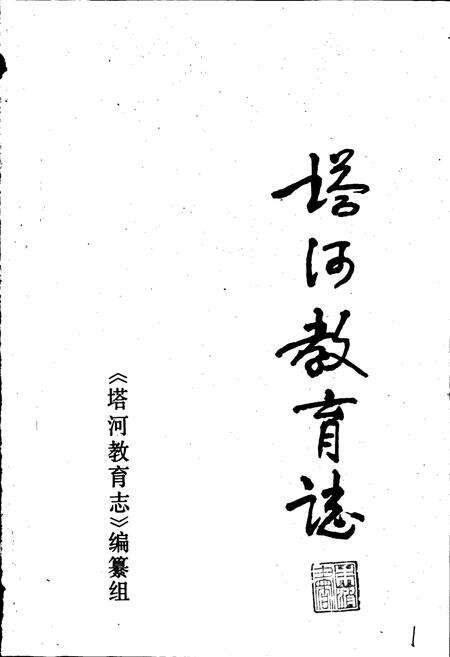 塔河教育誌
《塔河教育志》编纂组
1